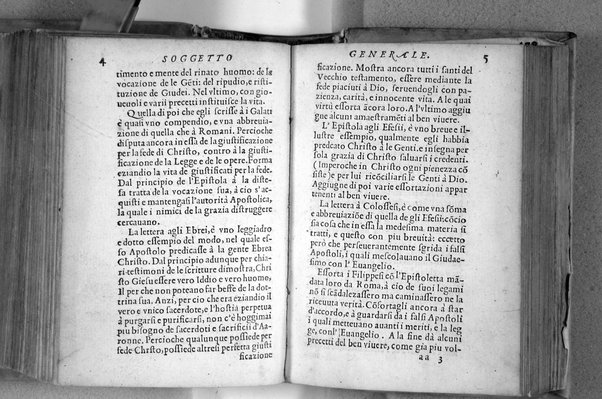 4 SOGGETTO
timento e mente del rinato huomo: de la
vocazione de le Gẽti: del ripudio, e risti-
tuzione de Giudei. Nel vltimo, con gio-
ueuoli e varii precetti instituisce la vita.
Quella di poi che egli scrisse à i Galati
è quasi vno compendio, e vna abbreuia-
zione di quella che à Romani. Percioche
disputa ancora in essa de la giustificazione
per la fede di Christo, contro à la giusti-
ficazione de la Legge e de le opere. Forma
eziandio la vita de giustificati per la fede.
Dal principio de l'Epistola à la diste-
sa tratta de la vocazione sua, à cio s'ac-
quisti e mantengasi l'autorità Apostolica,
la quale i nimici de la grazia distruggere
cercauano.
La lettera agli Ebrei, è vno leggiadro
e dotto essempio del modo, nel quale es-
so Apostolo predicasse à la gente Ebrea
Christo. Dal principio adunque per chia-
ri testimoni de le scritture dimostra, Chri
sto Giesu essere vero Iddio e vero huomo,
Il per che non poteano far beffe de la dot-
trina sua. Anzi, per cio che era eziandio il
vero e vnico sacerdote, e l'hostia perpetua
à purgarsi e purificarsi, non c'è hoggimai
piu bisogno de sacerdoti e sacrificii d'Aa-
ronne. Percioche qualunque possiede per
fede Christo, possiede altresi perfetta giusti
ficazione
GENERALE. 5
ficazione. Mostra ancora tutti i santi del
Vecchio testamento, essere mediante la
fede piaciuti à Dio, seruendogli con pa-
zienza, carità, e innocente vita. A le quai
virtù essorta ãcora loro. A l'vltimo aggiu
gne alcuni amaestramẽti al ben viuere.
L'Epistola agli Efesii, è vno breue e il-
lustre essempio, qualmente egli habbia
predicato Christo à le Genti. e insegna per
sola grazia di Christo saluarsi i credenti.
( Imperoche in Christo ogni pienezza cõ
siste )e per lui ricõciliarsi le Genti à Dio.
Aggiugne di poi varie essortazioni appar
tenenti al ben viuere.
La lettera à Colossesi, è come vna sõma
e abbreuiaziõe di quella de gli Efesii: cõcio
sia cosa che in essa la medesima materia si
tratti, e questo con piu breuità: eccetto
però che perseuerantemente sgrida i falsi
Apostoli, i quali mescolauano il Giudae-
simo con l'Euangelio.
Essorta i Filippesi cõ l'Epistoletta mã-
data loro da Roma, à cio de suoi legami
nõ si scãdalezzassero ma caminassero ne la
riceuuta verità. Cõfortagli ancora à star
d'accordo, e à guardarsi da i falsi Apostoli
i quali metteuano auanti i meriti, e la leg
ge, conl' Euangelio. A la fine dà alcuni
precetti del ben viuere, come gia piu vol-
aa 3